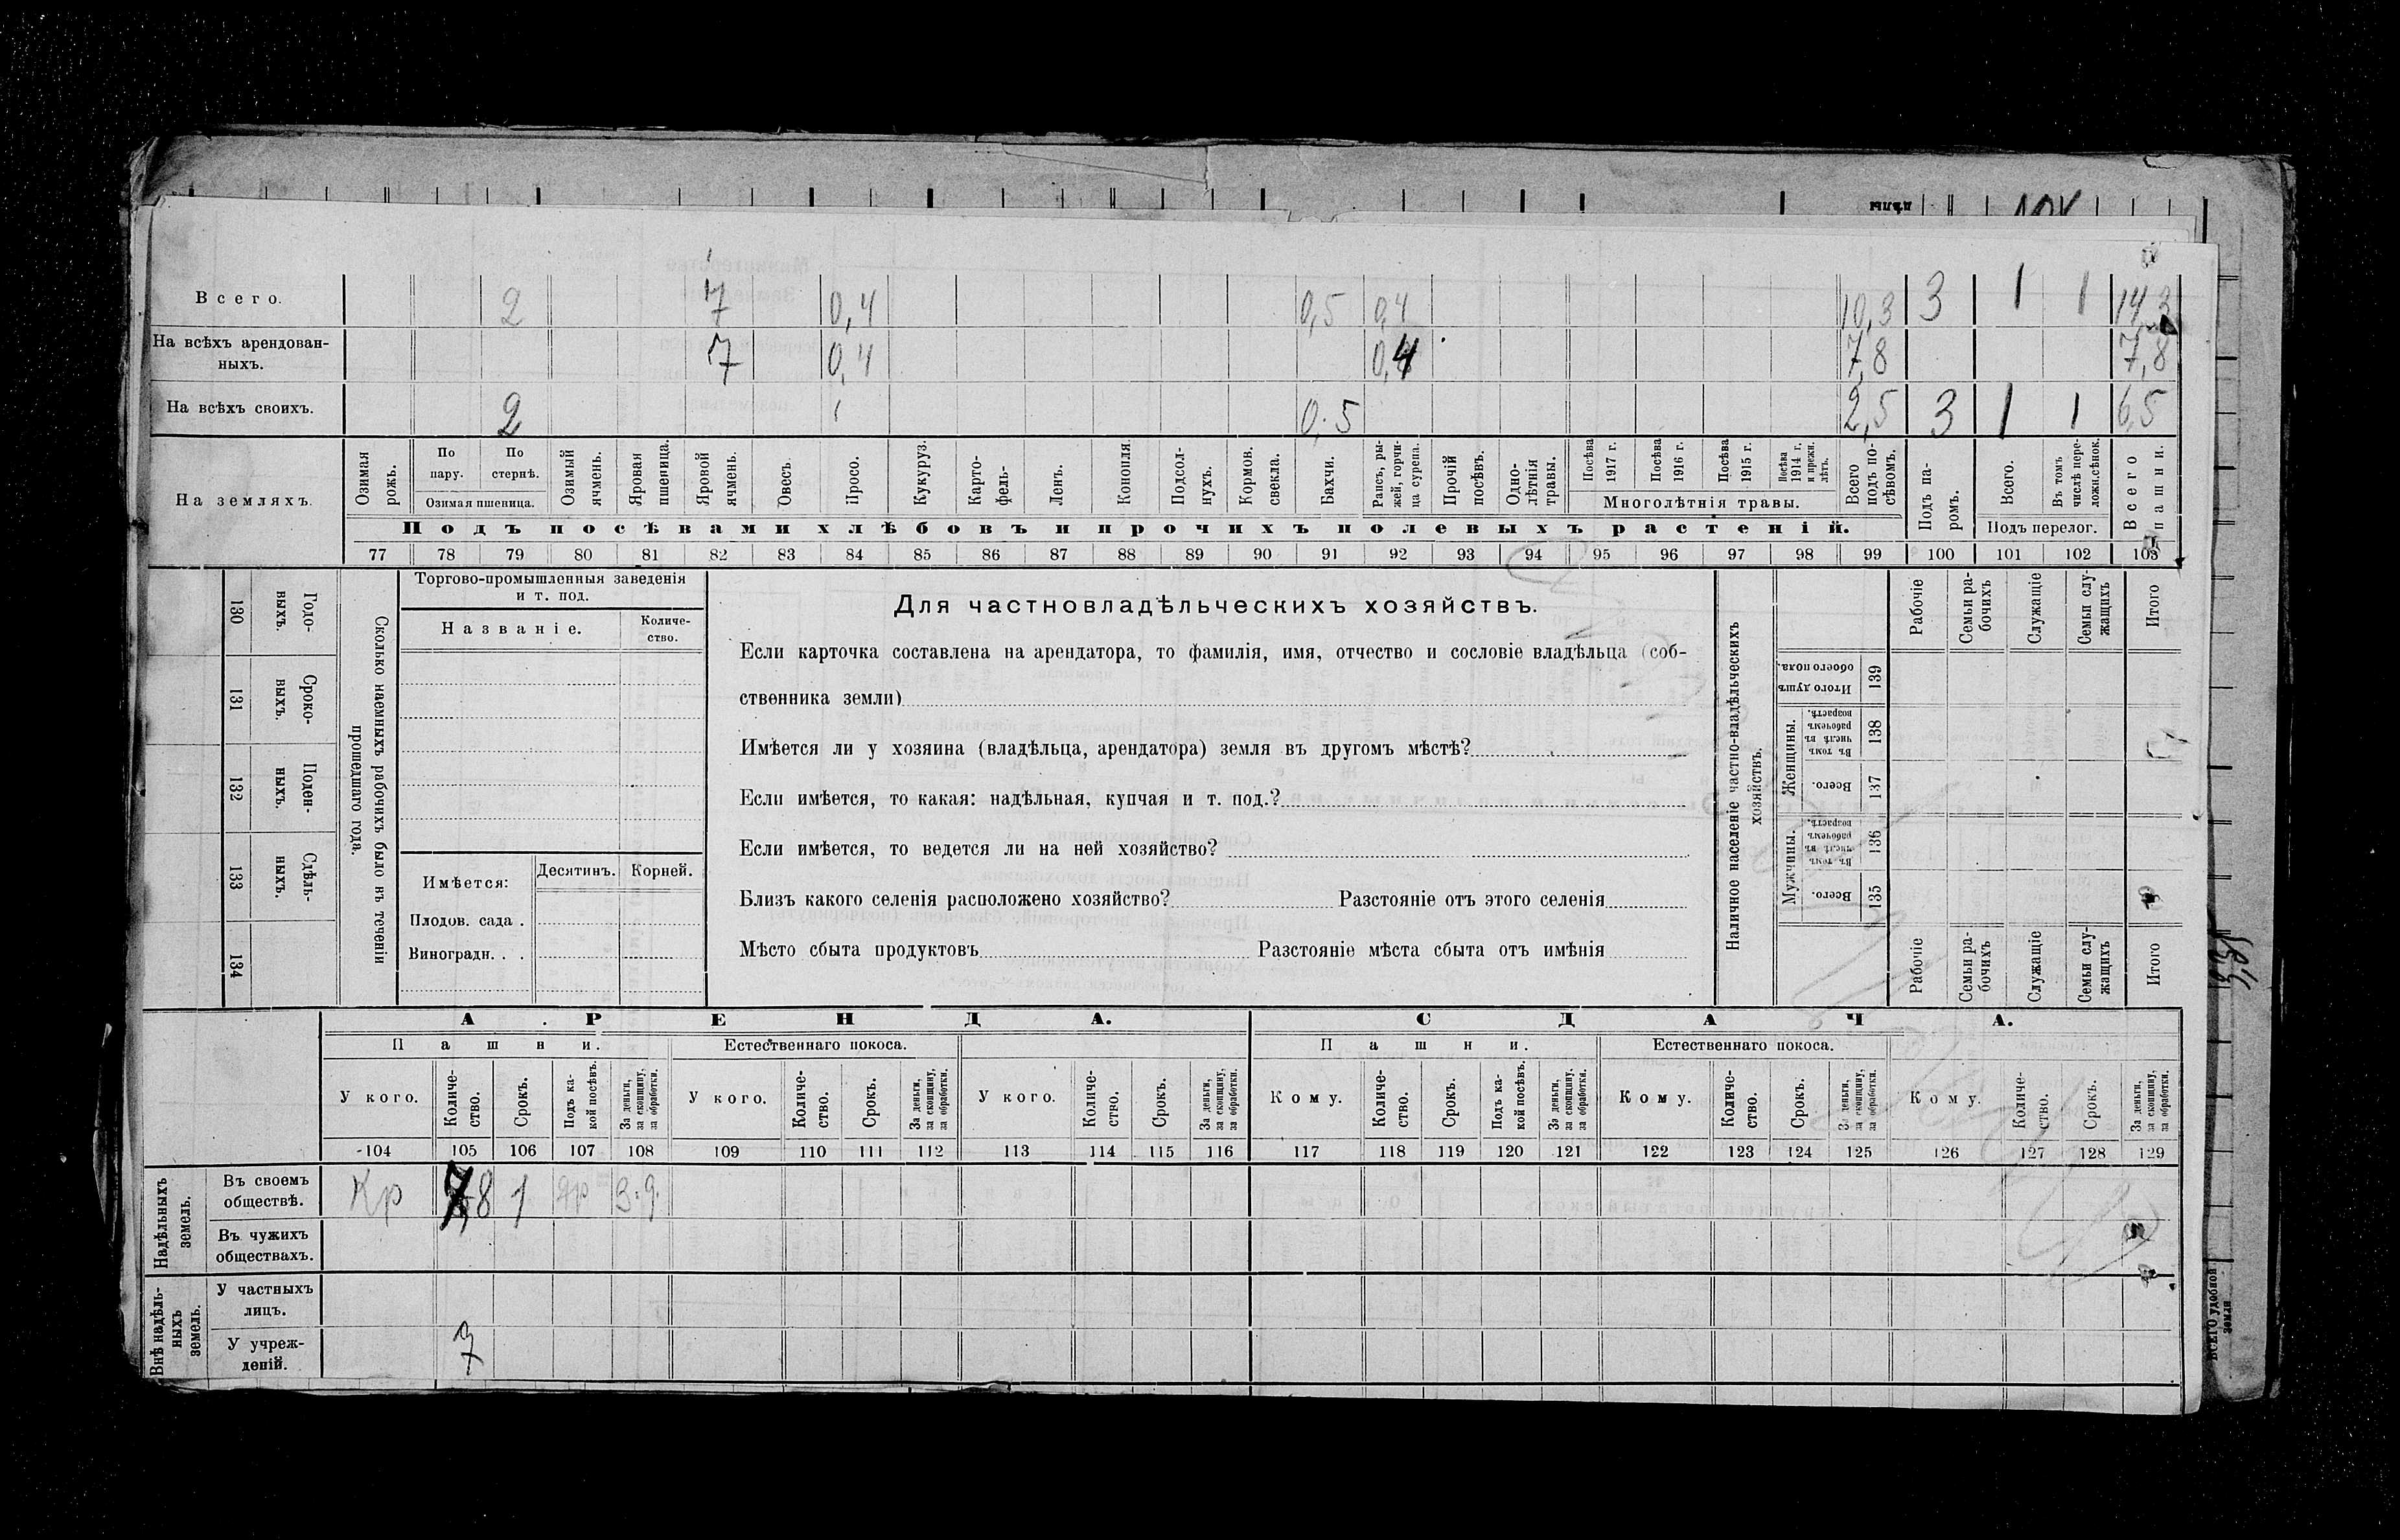 Всего. 2 7 0,4 0,5 0,4 10,3 3 1 1 14,3
На всѣхъ арендован-
ныхъ. 7 0,4 0,4 7,8 7,8
На всѣхъ своихъ. 2 0.5 2,5 3 1 1 6,5
На земляхъ.
Озимая рожь.
По пару.
По стернѣ.
Озимая пшеница.
Озимый ячмень.
Яровая пшеница.
Яровой ячмень.
Овесъ.
Просо.
Кукуруз.
Карто-
фель-
Ленъ.
Конопля
Подсол-
нухъ.
Кормов.
свекла.
Бахчи.
Рапсъ, ры-
жей, горчи-
ца сурепа.
Прочій
посѣвъ.
Одно-
лѣтнія
травы.
Посѣва
1917 г.
Посѣва
1916 г.
Посѣва
1915 г.
Посѣва
1914 г.
и прежн.
лѣтъ.
Многолѣтнія травы.
Всего
подъ по-
сѣвомъ.
Подъ па-
ромъ.
Всего.
Въ томъ
числѣ пере-
ложн.сѣнок.
Подъ перелог.
Всего
пашни.
Подъ посѣвами хлѣбовъ и прочихъ полевыхъ растеній.
77 78 79 80 81 82 83 84 85 86 87 88 89 90 91 92 93 94 95 96 97 98 99 100 101 102 103
130 Годо-
выхъ.
131 Сроко-
выхъ.
132 Поден-
ныхъ.
133 Сдѣль-
ныхъ.
134
Сколько наемныхъ рабочихъ было въ теченіи
прошедшаго года.
Торгово-промышленныя заведенія
и т. под.
Названіе.
Количе-
ство.
Имѣется:
Десятинъ. Корней.
Плодов. сада .
Виноградн. . .
Для частновладѣльческихъ хозяйствъ.
Если карточка составлена на арендатора, то фамилія, имя, отчество и сословіе владѣльца (соб-
ственника земли)
Имѣется ли у хозяина (владѣльца, арендатора) земля въ другомъ мѣстѣ?
Если имѣется, то какая: надѣльная, купчая и т. под.?
Если имѣется, то ведется ли на ней хозяйство?
Близъ какого селенія расположено хозяйство? Разстояніе отъ этого селенія
Мѣсто сбыта продуктовъ Разстояніе мѣста сбыта отъ имѣнія
Наличное населеніе частно-владѣльческихъ
хозяйствъ.
Рабочіе
Семьи ра-
бочихъ
Служащіе
Семьи слу-
жащихъ
Итого
Итого душъ
обоего пола.
139
Женщины.
Въ томъ
числѣ въ
рабочемъ
возрастѣ.
138
Всего.
137
Мужчины.
Въ томъ
числѣ въ
рабочемъ
возрастѣ.
136
Всего.
135
Рабочіе
Семьи ра-
бочихъ
Служащіе
Семьи слу-
жащихъ
Итого
АРЕНДА. СДАЧА.
Пашни. Естественнаго покоса. Пашни. Естественнаго покоса.
У кого.
Количе-
ство.
Срокъ.
Подъ ка-
кой посѣвъ.
За деньги,
за скопщину,
за обработки.
У кого.
Количе-
ство.
Срокъ.
За деньги,
за скопщину,
за обработки.
У кого.
Количе-
ство.
Срокъ.
За деньги,
за скопщину,
за обработки.
Кому.
Количе-
ство.
Срокъ.
Подъ ка-
кой посѣвъ.
За деньги,
за скопщину,
за обработки.
Кому.
Количе-
ство.
Срокъ.
За деньги,
за скопщину,
за обработки.
Кому.
Количе-
ство.
Срокъ.
За деньги,
за скопщину,
за обработки.
104 105 106 107 108 109 110 111 112 113 114 115 116 117 118 119 120 121 122 123 124 125 126 127 128 129
Надѣльныхъ
земель.
Въ своемъ
обществѣ. Кр 7,8 1 яр
Въ чужихъ
обществахъ.
Внѣ надѣль-
ныхъ
земель.
У частныхъ
лицъ.
У учреж-
деній. 7
ВСЕГО удобной
земли